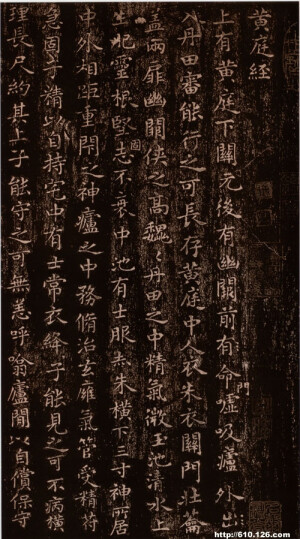 黄庭經
上有黄庭下關元後有幽關前有命嘘吸廬外出
入丹田審能行之可長存黄庭中人衣朱衣關門壯籥
蓋兩扉幽關俠之高魏魏丹田之中精氣微玉池清水上
生肥靈根堅志不衰中池有士服赤朱橫下三寸神所居
中外相距重閇之神廬之中務脩治玄廱氣管受精符
急固子精以自持宅中有士常衣絳子能見之可不病橫
理長尺約其上子能守之可無恙呼噏廬閒以自償保守
門
http://610.126.com